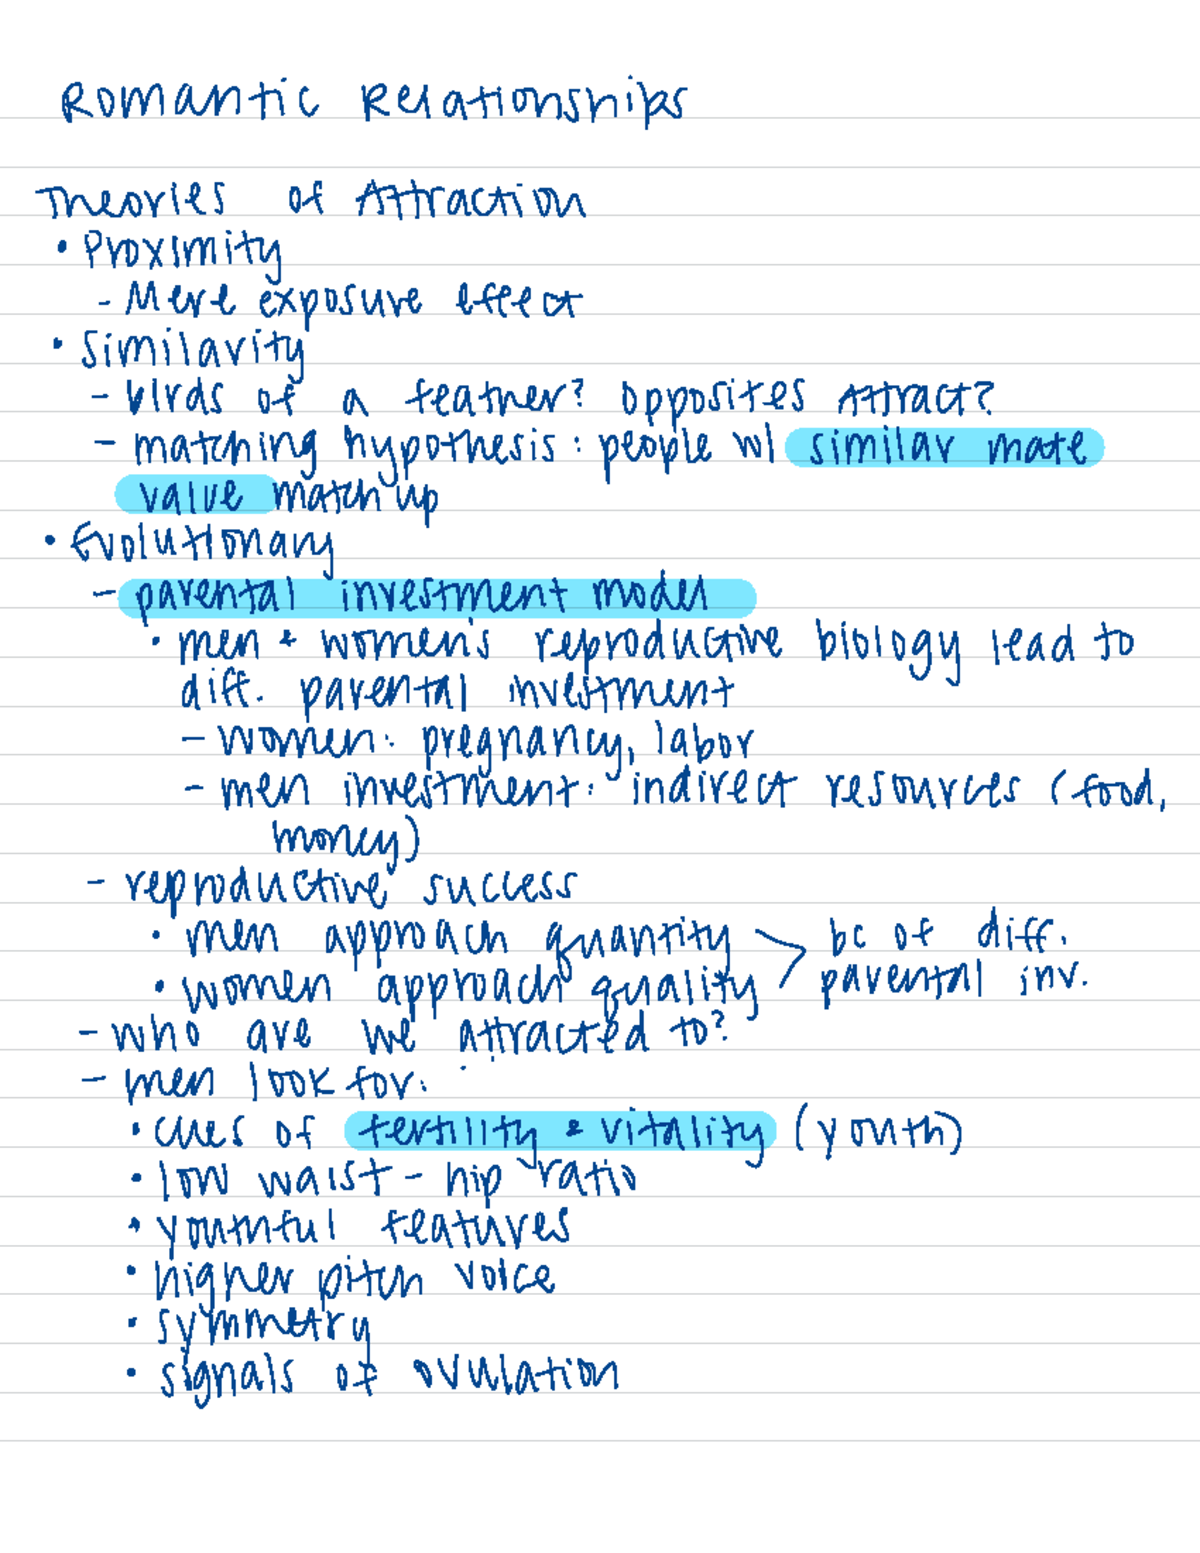 Romantic Relationships
Theories of Attraction
• Proximity
- Mere exposure effect
• Similarity
- birds of a feather? Opposites Attract?
- matching hypothesis: people w/ similar mate
value match up
• Evolutionary
- parental investment model
• men & women's reproductive biology lead to
diff. parental investment
- women: pregnancy, labor
- men investment: indirect resources (food,
money)
- reproductive success
• men approach quantity > bc of diff.
• women approach quality parental inv.
- who are we attracted to?
- men look for:
• cues of fertility & vitality (youth)
• low waist-hip ratio
• youthful features
• higher pitch voice
• symmetry
• signals of ovulation